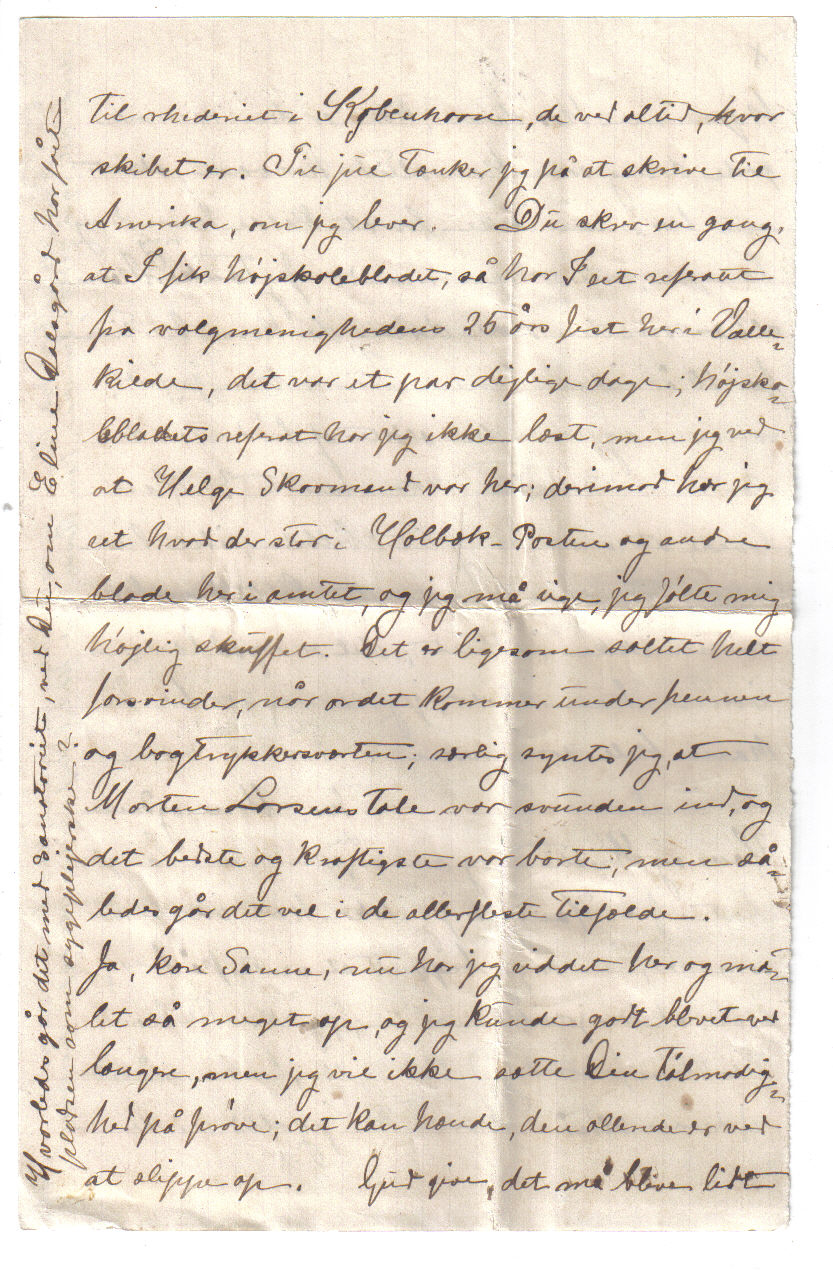 til rhederiet i København, de ved altid, hvor
skibet er. Til jul tænker jeg på at skrive til
Amerika, om jeg lever. Du skrev en gang,
at I fik højskolebladet, så har I set referatet
fra valgmenighedens 25 års fest her i Valle-
kilde, det var et par dejlige dage; højsko-
lebladets referat har jeg ikke læst, men jeg ved
at Helge Skovmand var her; derimod har jeg
set hvad der står i Holbæk-Posten og andre
blade her i amtet, og jeg må sige, jeg følte mig
højlig skuffet. Det er ligesom saltet helt
forsvinder, når ordet kommer under pennen
og bogtrykkersværten; særlig syntes jeg, at
Morten Larsens tale var svunden ind, og
det bedste og kraftigste var borte; men så-
ledes går det vel i de allerfleste tilfælde.
Ja, kære Sanne, nu har jeg siddet her og må-
let så meget op, og jeg kunde godt blevet ved
længere, men jeg vil ikke sætte Din tålmodig-
hed på prøve; det kan hænde, den allerede er ved
at slippe op. Gud give, det må blive lidt
Hvorledes går det med Sanatoriet, ved Du, om Eline Dalsgård har fået
pladsen som sygeplejerske?